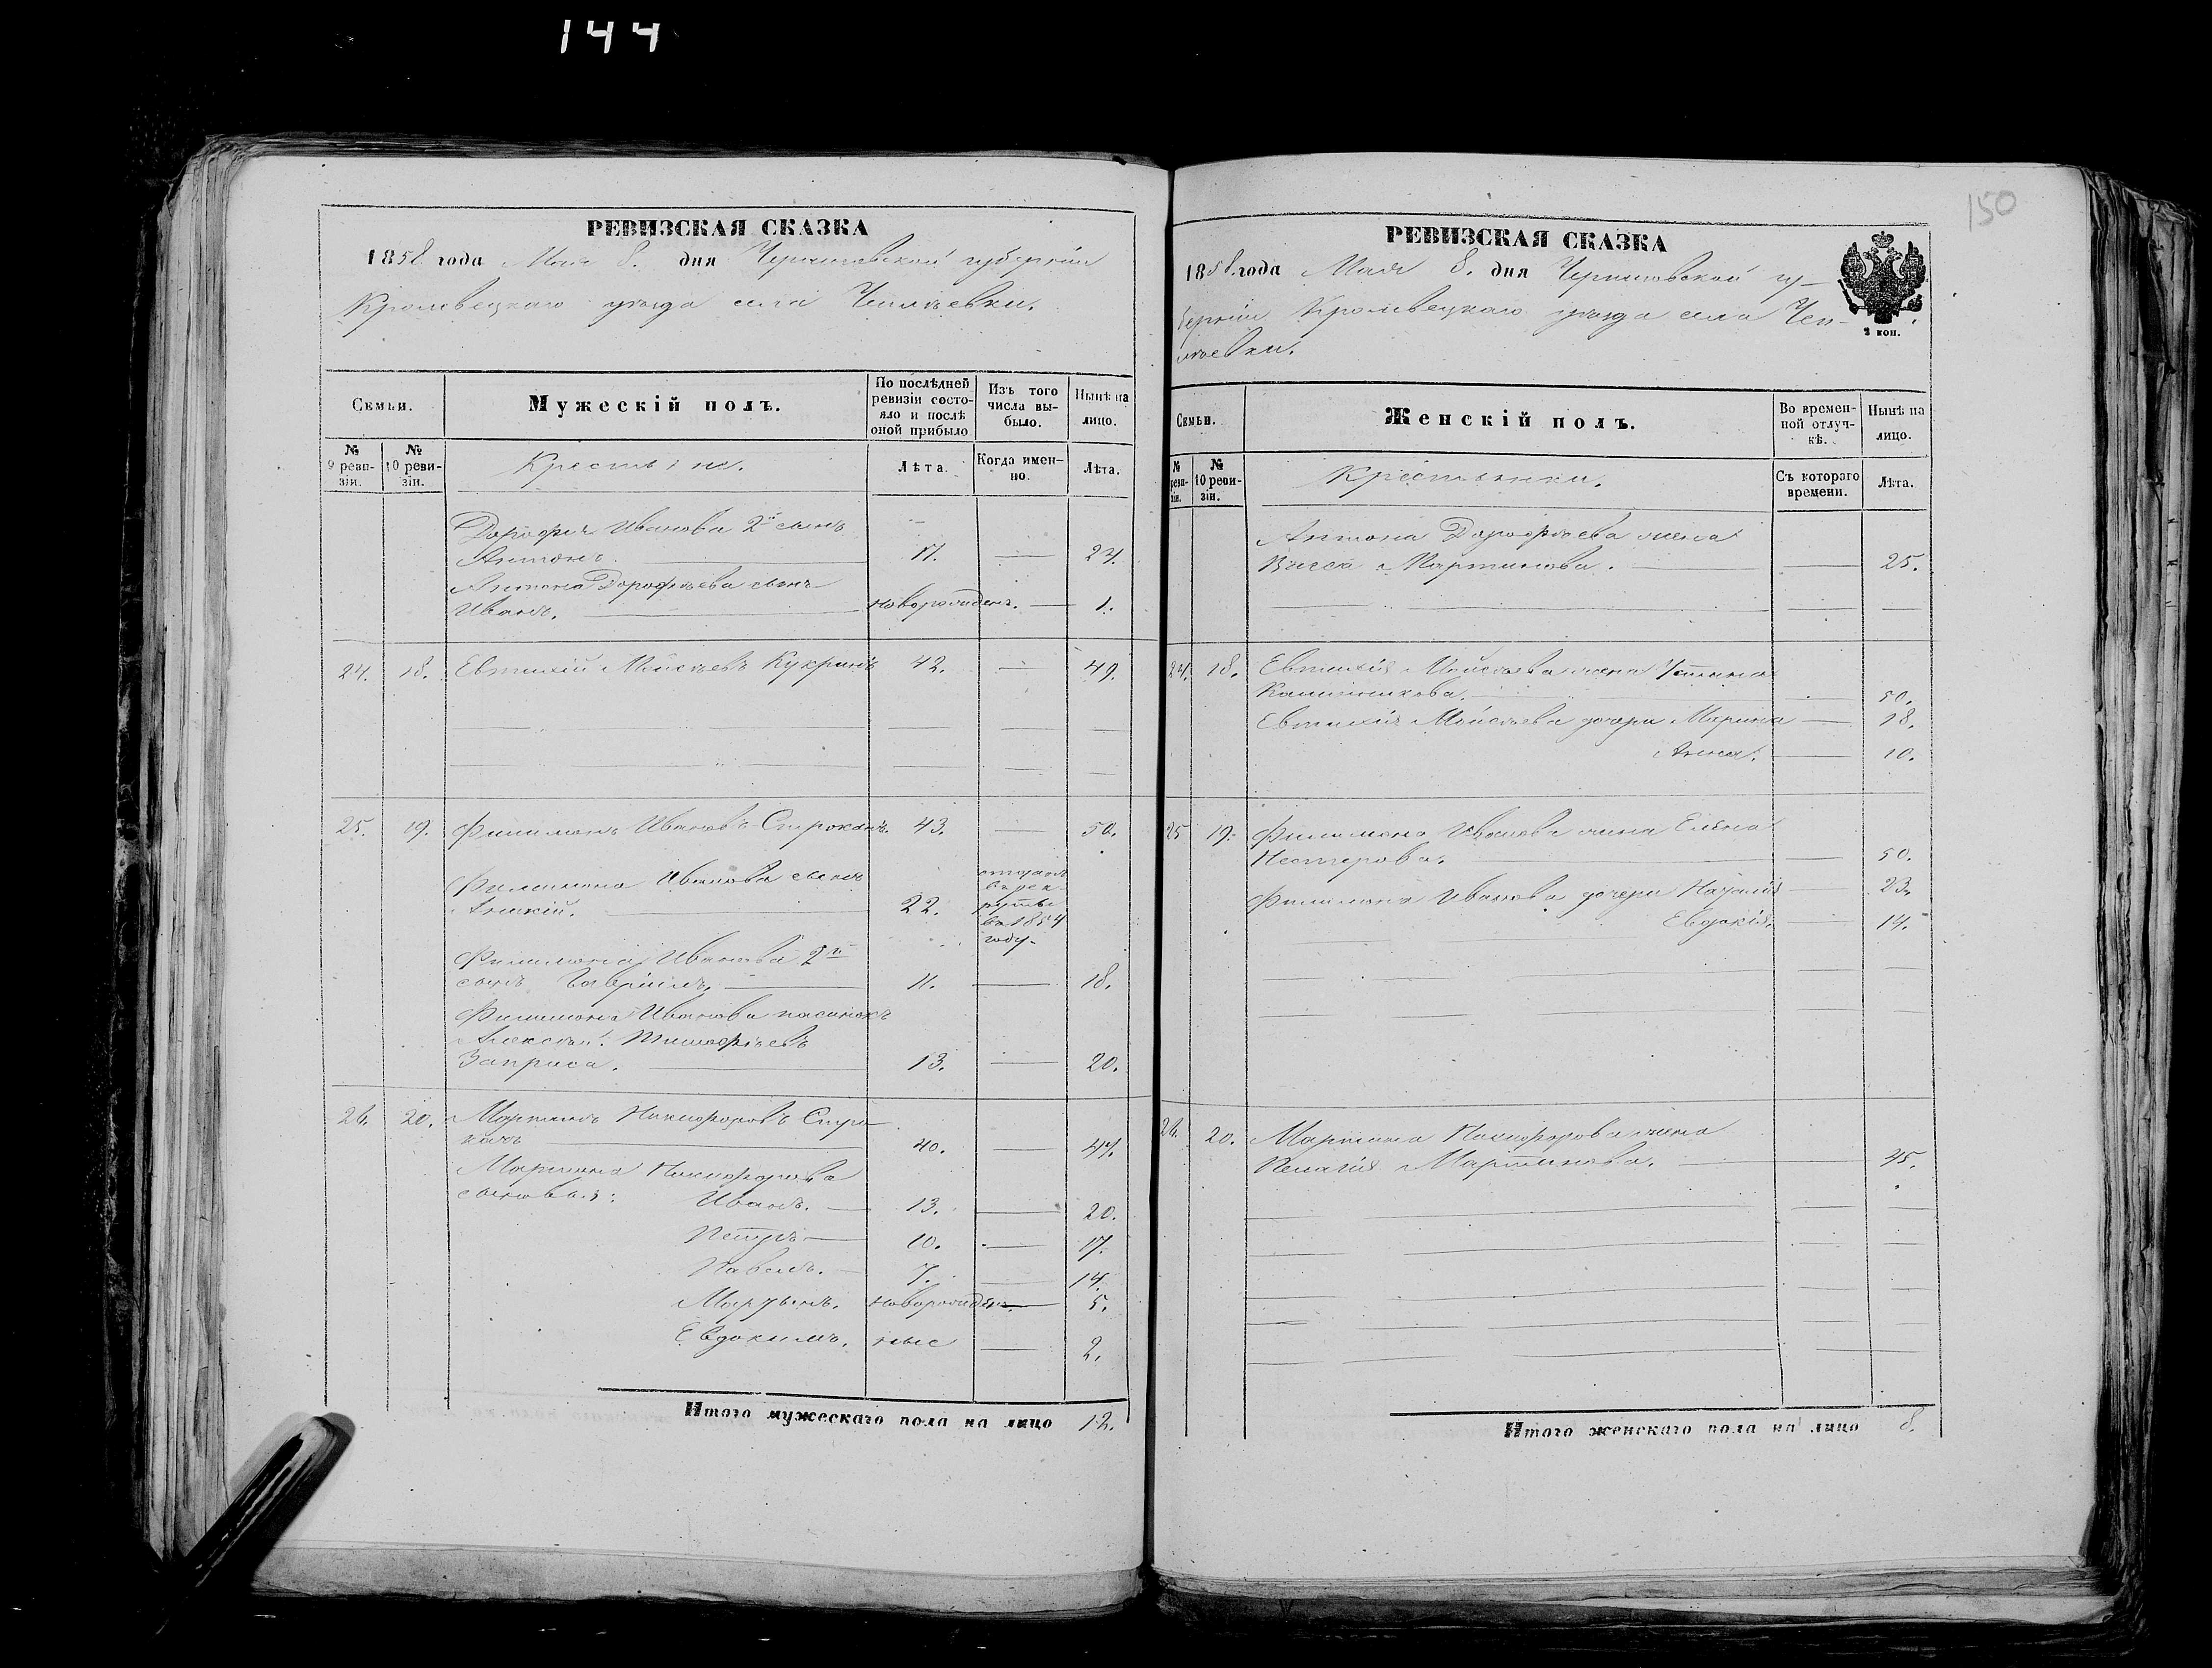 144
150
РЕВИЗСКАЯ СКАЗКА
1858 года Мая 8. дня Черниговской губерніи
Кролевецкаго уѣзда села Чеплѣевки.
Семьи.
Мужескій полъ.
По послѣдней ревизіи состояло и послѣ оной прибыло
Изъ того числа выбыло.
Нынѣ на лицо.
№ 9 ревизіи.
№ 10 ревизіи.
Крестьяне.
Лѣта.
Когда именно.
Лѣта.
Дорофея Иванова 2й сынъ
Антонъ 17. — 24.
Антона Дорофѣева сынъ
Иванъ. новорожден. — 1.
24. 18. Евтихій Мойсѣевъ Кукринъ 42. — 49.
25. 19. Филимонъ Ивановъ Строканъ. 43. — 50.
Филимона Иванова сынъ
Аникій. 22. отданъ въ рекруты въ 1854 году.
Филимона Иванова 2й
сынъ Гавріилъ. 11. — 18.
Филимона Иванова пасынокъ
Алексѣй Тимофѣевъ
Заприса. 13. — 20.
26. 20. Мартинъ Никифоровъ Стро-
канъ 40. — 47.
Мартина Никифорова
сыновья: Иванъ. 13. — 20.
Петръ 10. — 17.
Павелъ. 7. — 14.
Мартынъ. новорожден. — 5.
Евдокимъ. ные — 2.
Итого мужескаго пола на лицо 12.
РЕВИЗСКАЯ СКАЗКА
1858 года Мая 8. дня Черниговской гу-
берніи Кролевецкаго уѣзда села Чеп-
лѣевки.
2 коп.
Семьи.
Женскій полъ.
Во временной отлучкѣ.
Нынѣ на лицо.
№ реви-зіи.
№ 10 ревизіи.
Крестьянки.
Съ котораго времени.
Лѣта.
Антона Дорофѣева жена
Васса Мартинова. — 25.
24. 18. Евтихія Мойсѣева жена Устина
Калинникова. 50.
Евтихія Мойсѣева дочери Марина — 18.
Анна. — 10.
25 19. Филимона Иванова жена Елена
Нестерова. — 50.
Филимона Иванова дочери Наталія — 23.
Евдокія. — 14.
26. 20. Мартина Никифорова жена
Пелагія Мартинова. — 45.
Итого женскаго пола на лицо 8.